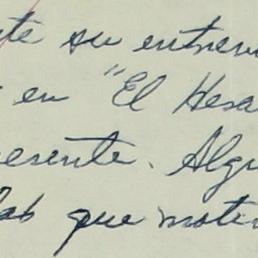 te su entrev
en "El Hesa
esente. Algu
que moti